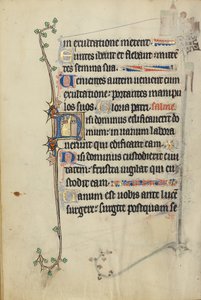 in exultatione metent
Euntes ibant et flebant mitten
tes semina sua
Uenientes autem uenient cum
exultatione: portantes manipu
los suos Gloria patri
Nisi dominus edificauerit do
mum: in uanum labora
uerunt qui edificant eam
Nisi dominus custodierit ciui
tatem: frustra uigilat qui cus
todit eam
Uanum est uobis ante lucem
surgere: surgite postquam se